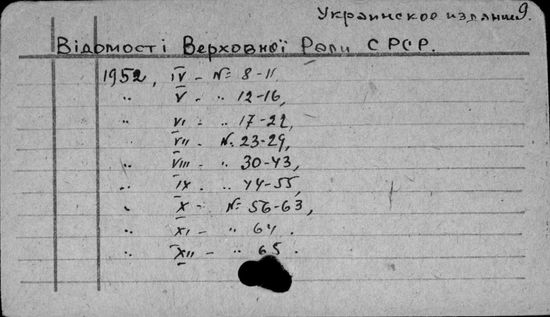 Украинское издание 9.
Відомості Верховної Ради СРСР.
1952, IV - № 8-11,
" V - " 12-16,
" VI - " 17-22,
" VII - № 23-29,
" VIII - " 30-43,
" IX - " 44-55,
" X - № 56-63,
" XI - " 64.
" XII - " 65.